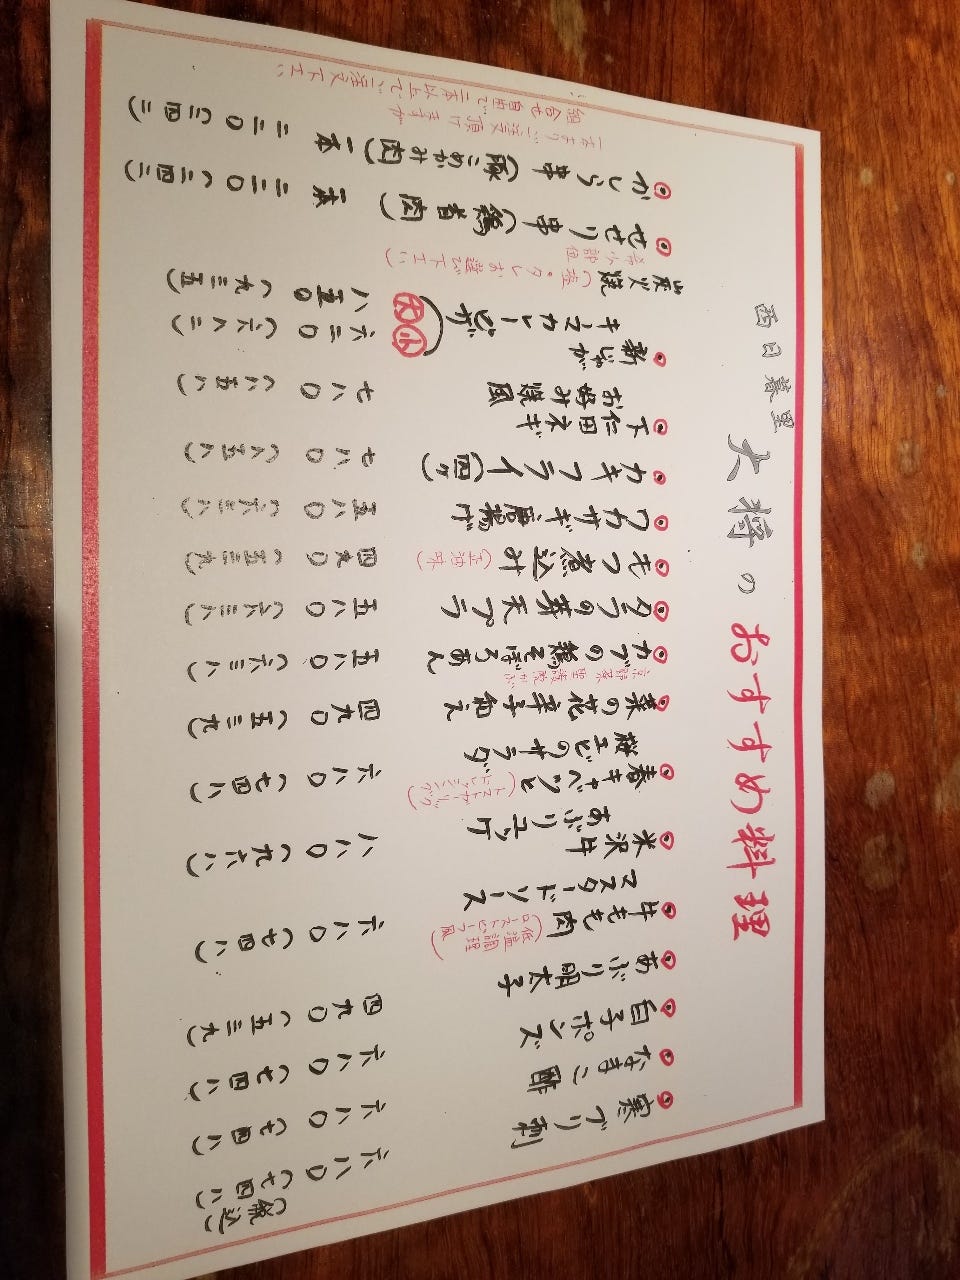 西日暮里
大将のおすすめ料理
寒ブリ刺 六八〇(七四八)
(税込)
なまこ酢 六八〇(七四八)
白子ポンズ 六八〇(七四八)
あぶり明太子 四九〇(五三九)
牛もも肉
(低温調理
ローストビーフ風)
マスタードソース 六八〇(七四八)
米沢牛
あぶりユッケ 八八〇(九六八)
春キャベツと
(トマトガーリック
ドレッシング)
桜エビのサラダ 六八〇(七四八)
菜の花辛子和え 四九〇(五三九)
京野菜 聖護院かぶ
カブの鶏そぼろあん 五八〇(六三八)
タラの芽天プラ 五八〇(六三八)
もつ煮込み(正油味) 四九〇(五三九)
ワカサギ唐揚げ 五八〇(六三八)
カキフライ(四ヶ) 七八〇(八五八)
下仁田ネギ
お好み焼風 七八〇(八五八)
新じゃが
キーマカレーピザ
小 六二〇(六八二)
大 八五〇(九三五)
炭火焼(塩・タレお選び下さい)
希少部位
せせり串(鶏首肉) 一本 二二〇(二四二)
かしら串(豚こめかみ肉) 一本 二二〇(二四二)
一本よりご注文頂けますが
組合せ自由で二本以上でご注文下さい